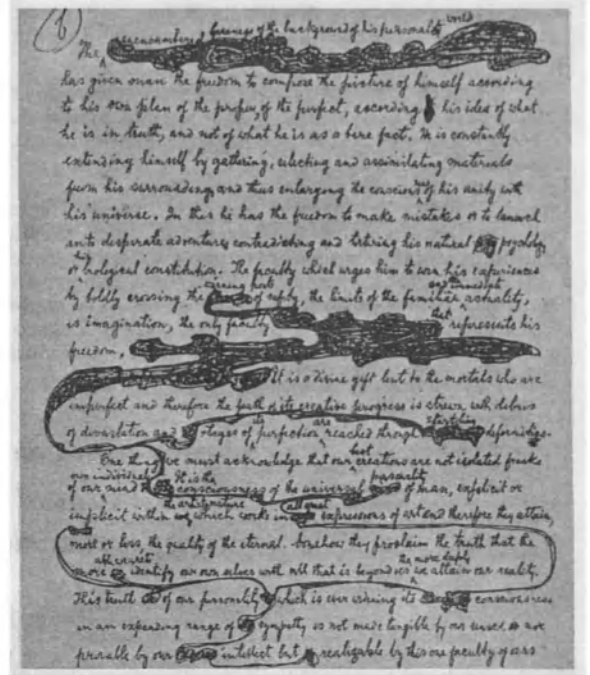 6
vagueness of the background of his personal world
The
has given man the freedom to compose the picture of himself according
to his own plan of the proper, of the perfect, according his idea of what
he is in truth, and not of what he is as a bare fact. He is constantly
extending himself by gathering, selecting and assimilating materials
from his surrounding and thus enlarging the consciousness of his unity with
his universe. In this he has the freedom to make mistakes or to launch
into desperate adventures contradicting and torturing his natural psychology
or biological constitution. The faculty which urges him to his experiences
by boldly crossing the of safety, the limits of the familiar and actuality,
is imagination, the only faculty that represents his
freedom.
It is a divine gift lent to the mortals who are
imperfect and therefore the path of its creative progress is strewn with debris
of devastation and stages of its perfection are reached through startling deformities.
One thing we must acknowledge that our creations are not isolated freaks
our individual It is the but personality
of our mind consciousness of the universal of man, explicit or
the all great
implicit within which works in expressions of art and therefore they attain,
more or less the quality of the eternal. Somehow they proclaim the truth that the
the more deeply
more identify our own selves with all that is beyond us we attain our reality.
This truth of our personality which is ever its consciousness
in an expanding range of sympathy is not made tangible by our senses or
provable by our intellect but realizable by this one faculty of ours